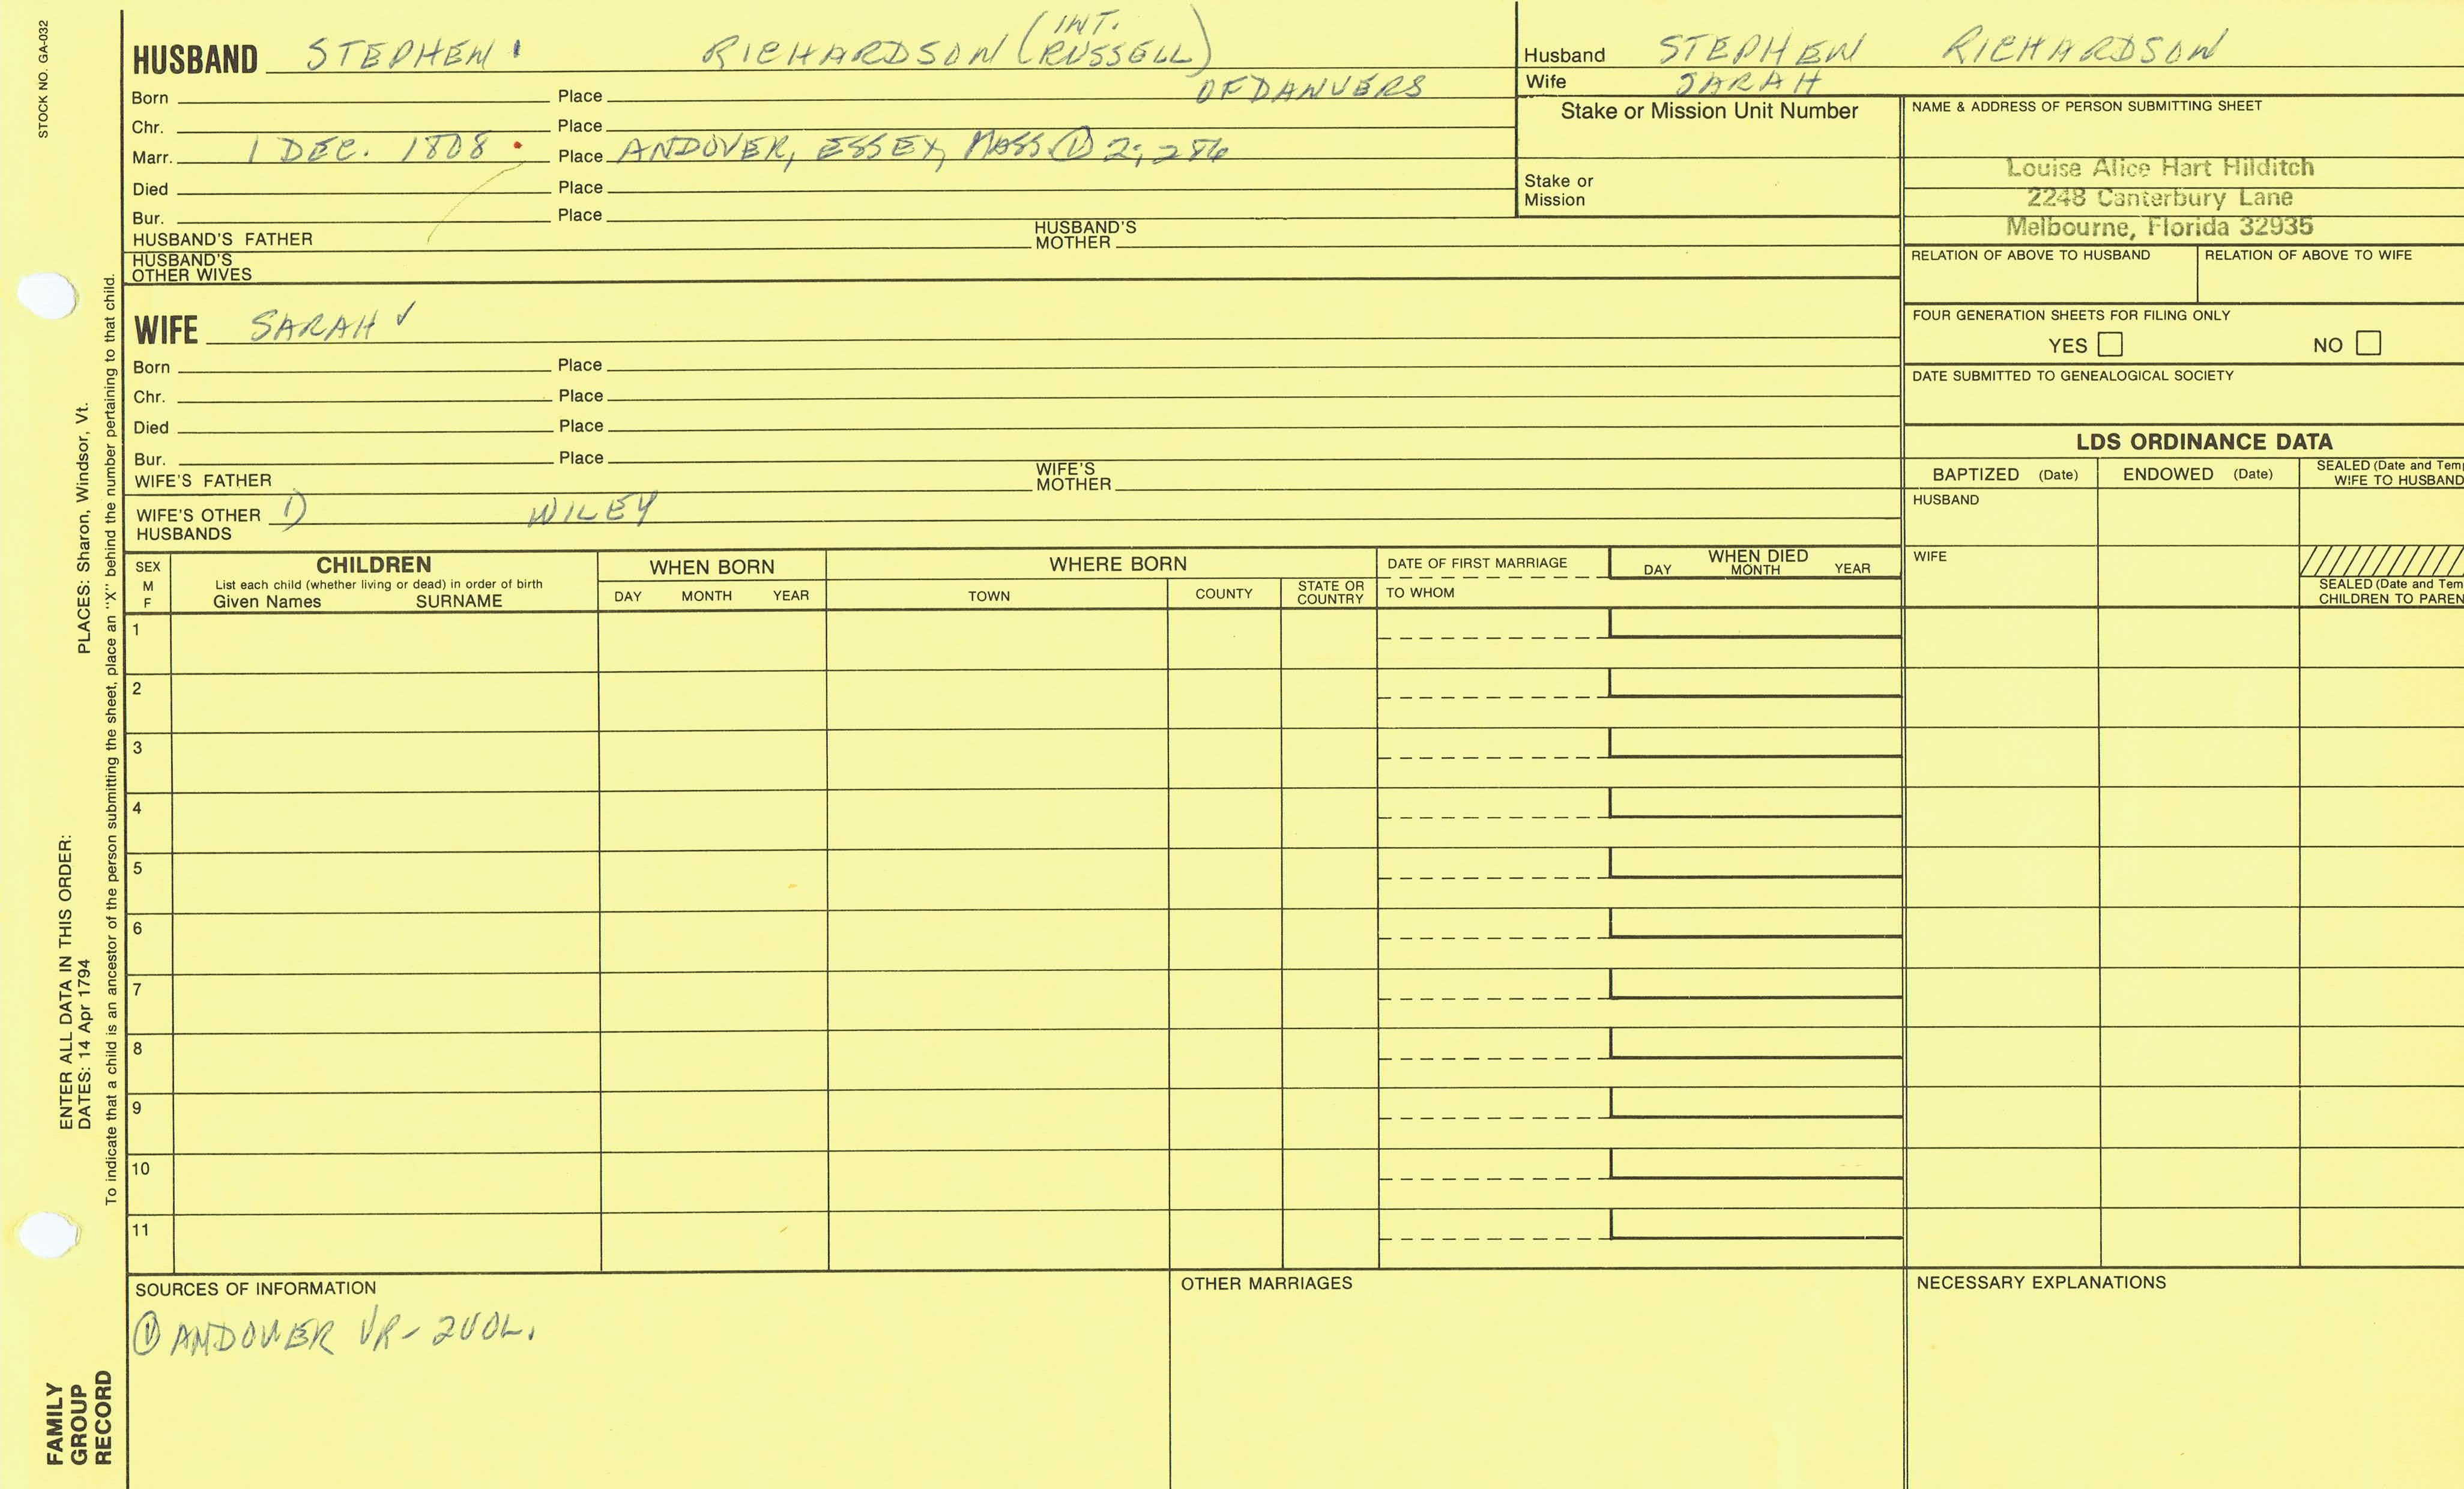 STOCK NO. GA-032
HUSBAND STEPHEN RICHARDSON (INT. RUSSELL)
OF DANVERS
Born Place
Chr. Place
Marr. 1 DEC. 1808 Place ANDOVER, ESSEX, MASS. ① 2; 286
Died Place
Bur. Place
HUSBAND'S FATHER HUSBAND'S MOTHER
HUSBAND'S OTHER WIVES
WIFE SARAH ✓
Born Place
Chr. Place
Died Place
Bur. Place
WIFE'S FATHER WIFE'S MOTHER
WIFE'S OTHER HUSBANDS 1) WILEY
Husband STEPHEN RICHARDSON
Wife SARAH
Stake or Mission Unit Number
Stake or Mission
NAME & ADDRESS OF PERSON SUBMITTING SHEET
Louise Alice Hart Hilditch
2248 Canterbury Lane
Melbourne, Florida 32935
RELATION OF ABOVE TO HUSBAND RELATION OF ABOVE TO WIFE
FOUR GENERATION SHEETS FOR FILING ONLY
YES NO
DATE SUBMITTED TO GENEALOGICAL SOCIETY
LDS ORDINANCE DATA
BAPTIZED (Date) ENDOWED (Date) SEALED (Date and Tem
WIFE TO HUSBAND
HUSBAND
WIFE
SEALED (Date and Tem
CHILDREN TO PAREN
SEX M F
CHILDREN
List each child (whether living or dead) in order of birth
Given Names SURNAME
WHEN BORN
DAY MONTH YEAR
WHERE BORN
TOWN COUNTY STATE OR COUNTRY
DATE OF FIRST MARRIAGE
TO WHOM
WHEN DIED
DAY MONTH YEAR
1
2
3
4
5
6
7
8
9
10
11
SOURCES OF INFORMATION
① ANDOVER VR - 2 VOL.
OTHER MARRIAGES
NECESSARY EXPLANATIONS
PLACES: Sharon, Windsor, Vt.
ENTER ALL DATA IN THIS ORDER:
DATES: 14 Apr 1794
To indicate that a child is an ancestor of the person submitting the sheet, place an "X" behind the number pertaining to that child.
FAMILY
GROUP
RECORD